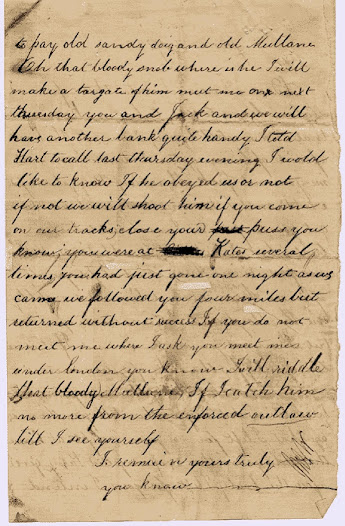 to pay old sandy doig and old Mullane
Oh that bloody snob where is he I will
make a targate of him meet me one next
thursday you and Jack and we will
have another bank quite handy I told
Hart to call last thursday evening I wold
like to know If he obeyed us or not
if not we will shoot him if you come
on our tracks close your puss you
know; you were at Kates several
times you had just gone one night as we
came we followed you four miles but
returned without success If you do not
meet me where I ask you meet me
under london you know I will riddle
that bloody Mullane If I catch him
no more from the enforced outlaw
till I see yourself
I remain yours truly
you know